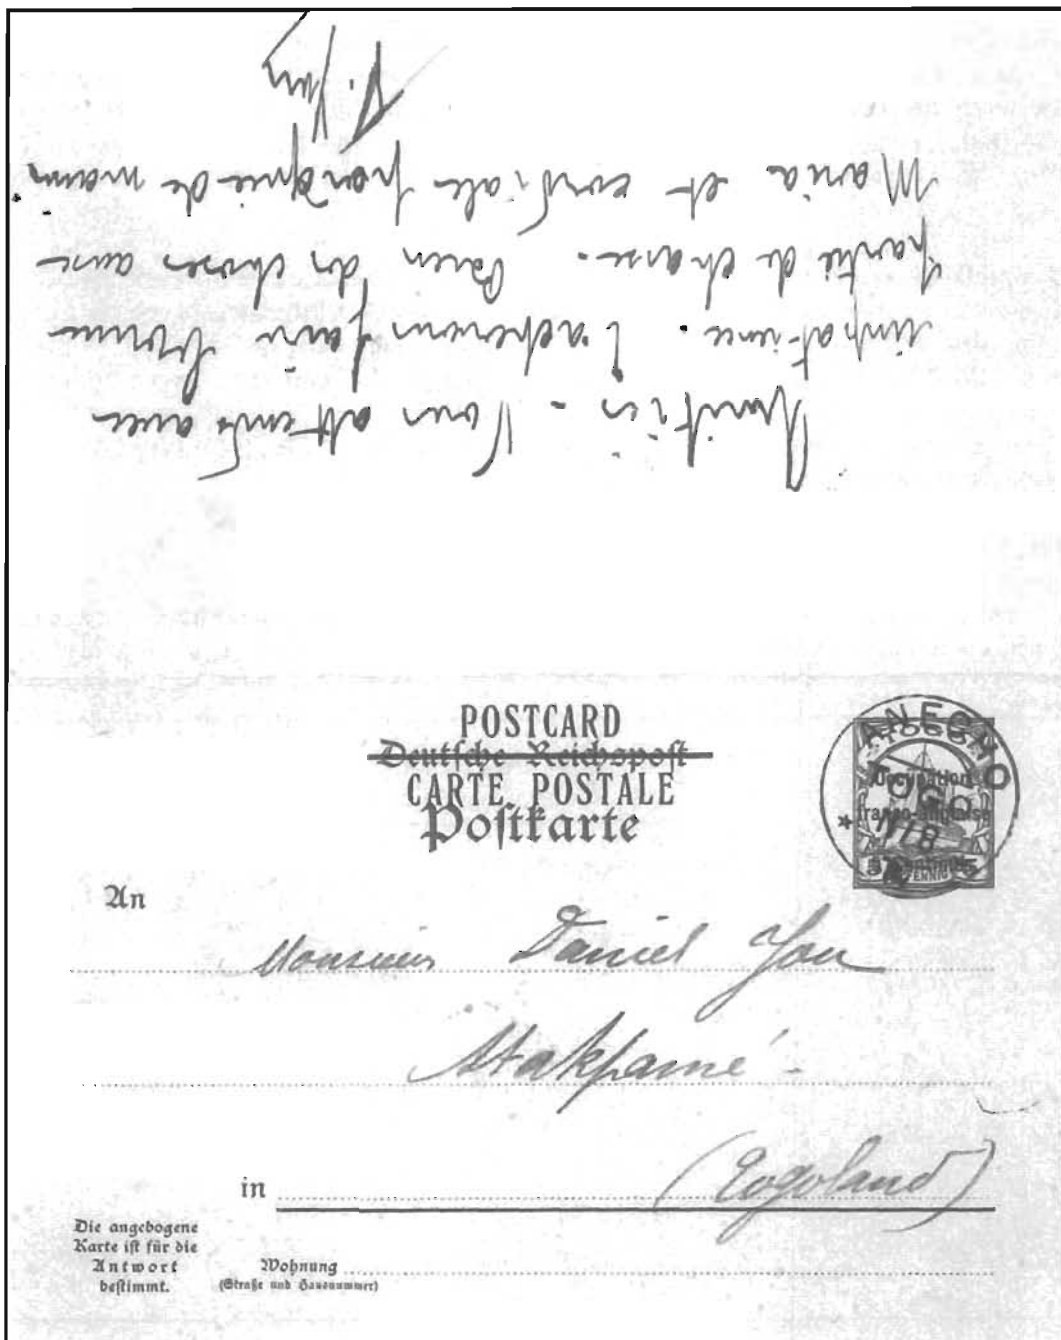 Vous attends avec
impatience. faire bonne
partie de chasse. Bien des choses
Maria et cordiale poignée de main
POSTCARD
Deutsche Reichspost
CARTE POSTALE
Postkarte
ANECHO
TOGO
Occupation
franco-anglaise
PFENNIG
An
Monsieur Daniel
Atakpamé -
in (Togoland)
Die angebogene
Karte ist für die
Antwort
bestimmt.
Wohnung
(Straße und Hausnummer)